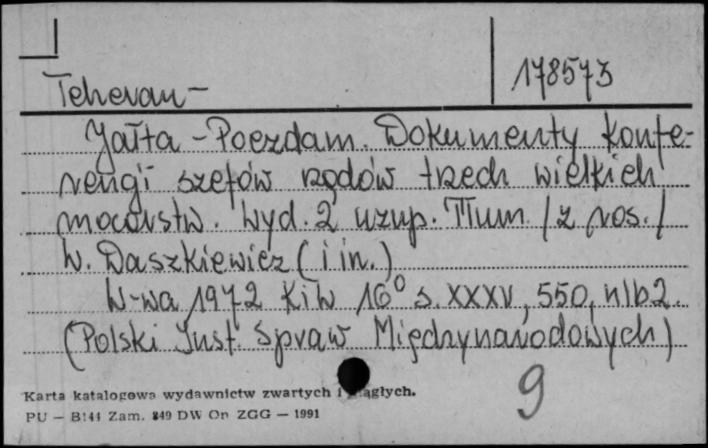 Teheran - 178573
Jałta - Poczdam. Dokumenty konfe-
rencji szefów rządów trzech wielkich
mocarstw. Wyd. 2 uzup. Tłum. /z ros./
W. Daszkiewicz (i in.)
W-wa 1972 KiW 16° s. XXXV, 550, nlb 2.
(Polski Inst. Spraw Międzynarodowych)
9
Karta katalogowa wydawnictw zwartych i ciągłych.
PU — B141 Zam. 849 DW Op ZGG — 1991